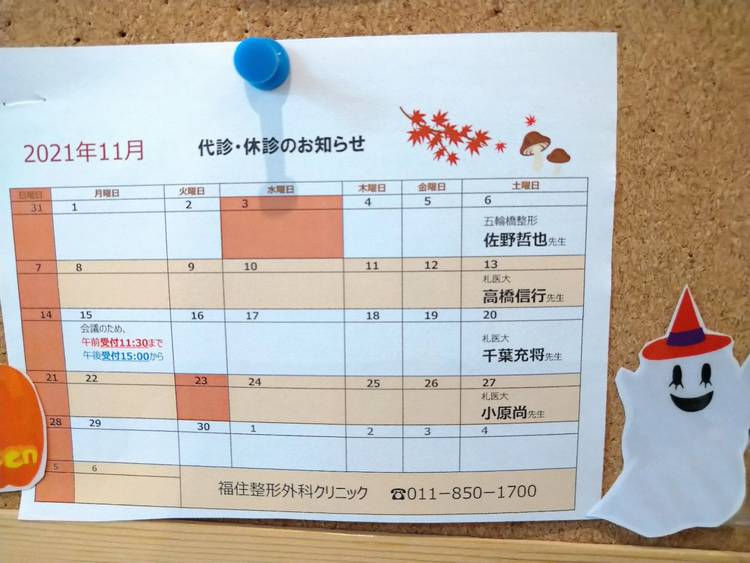 2021年11月 代診・休診のお知らせ
日曜日 月曜日 火曜日 水曜日 木曜日 金曜日 土曜日
31 1 2 3 4 5 6
五輪橋整形
佐野哲也先生
7 8 9 10 11 12 13
札医大
高橋信行先生
14 15 16 17 18 19 20
会議のため、
午前受付11:30まで
午後受付15:00から
札医大
千葉充将先生
21 22 23 24 25 26 27
札医大
小原尚先生
28 29 30 1 2 3 4
5 6
福住整形外科クリニック ☎011-850-1700
een